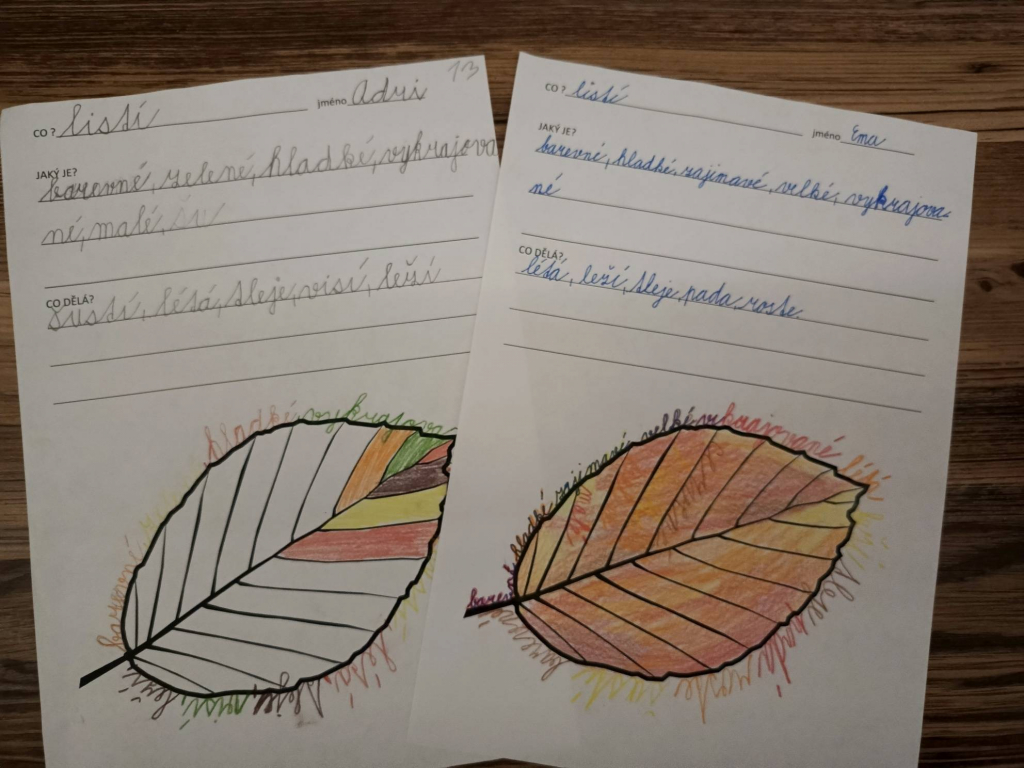 13
CO? listí jméno Adri
JAKÝ JE?
barevné, zelené, hladké, vykrajova
né, malé,
CO DĚLÁ?
šustí, létá, tleje, visí, leží
hladké vykrajova
barevné
leží tleje visí
CO? listí jméno Ema
JAKÝ JE?
barevné, hladké, zajímavé, velké, vykrajova-
né
CO DĚLÁ?
létá, leží, tleje pada roste
barevné hladké zajímavé velké vykrajované létá